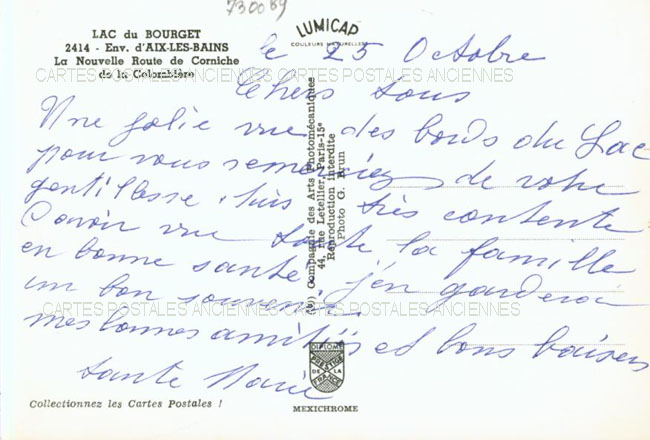 730089
LAC du BOURGET
2414 - Env. d'AIX-LES-BAINS
La Nouvelle Route de Corniche
de la Colombière
LUMICAP
COULEURS NATURELLES
CARTES POSTALES ANCIENNES CARTES POSTALES ANCIENNES
le 25 Octobre
Chers tous
Une jolie vue des bords du Lac
pour vous remerciez de votre
gentillesse, suis très contente
d'avoir vue toute la famille
en bonne santé, j'en garderai
un bon souvenir.
mes bonnes amitiés et bons baisers
tante Marie
CARTES POSTALES ANCIENNES CARTES POSTALES ANCIENNES
Compagnie des Arts Photomécaniques
44, rue Letellier, Paris-15e
Reproduction interdite
Photo G. Brun
DIPLOME
PRESTIGE
DE LA
FRANCE
MEXICHROME
Collectionnez les Cartes Postales !